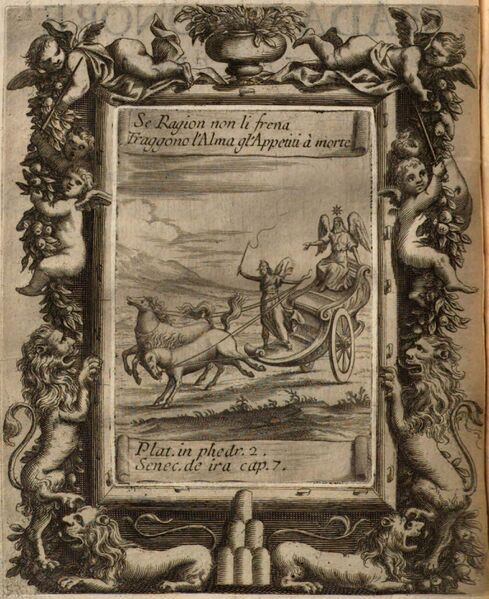 Se Ragion non li frena
Traggono l'Alma gl'Appetiti à morte
Plat. in phedr. 2.
Senec. de ira cap. 7.